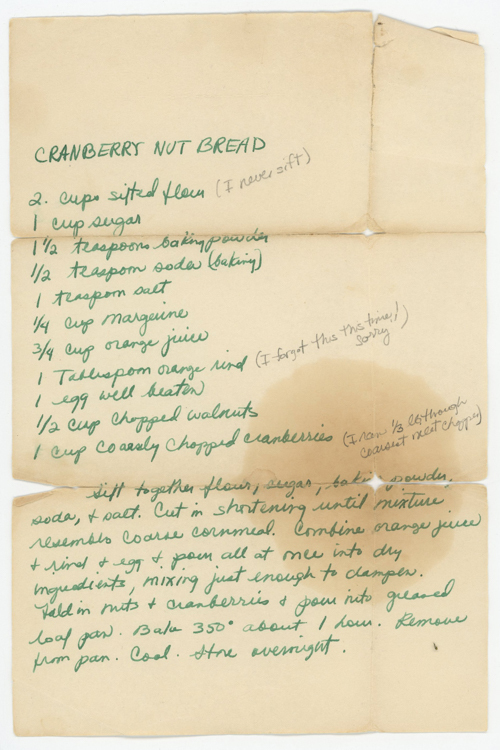 CRANBERRY NUT BREAD
2. cups sifted flour (I never sift)
1 cup sugar
1 1/2 teaspoons baking powder
1/2 teaspoon soda (baking)
1 teaspoon salt
1/4 cup margerine
3/4 cup orange juice
1 Tablespoon orange rind (I forgot this this time!) sorry
1 egg well beaten
1/2 cup chopped walnuts
1 cup coarsly chopped cranberries (I ran 1/3 lb through
coarsest meat chopper)
Sift together flour, sugar, baking powder,
soda, & salt. Cut in shortening until mixture
resembles coarse cornmeal. Combine orange juice
& rind & egg & pour all at once into dry
ingredients, mixing just enough to dampen.
Fold in nuts & cranberries & pour into greased
loaf pan. Bake 350° about 1 hour. Remove
from pan. Cool. Store overnight.